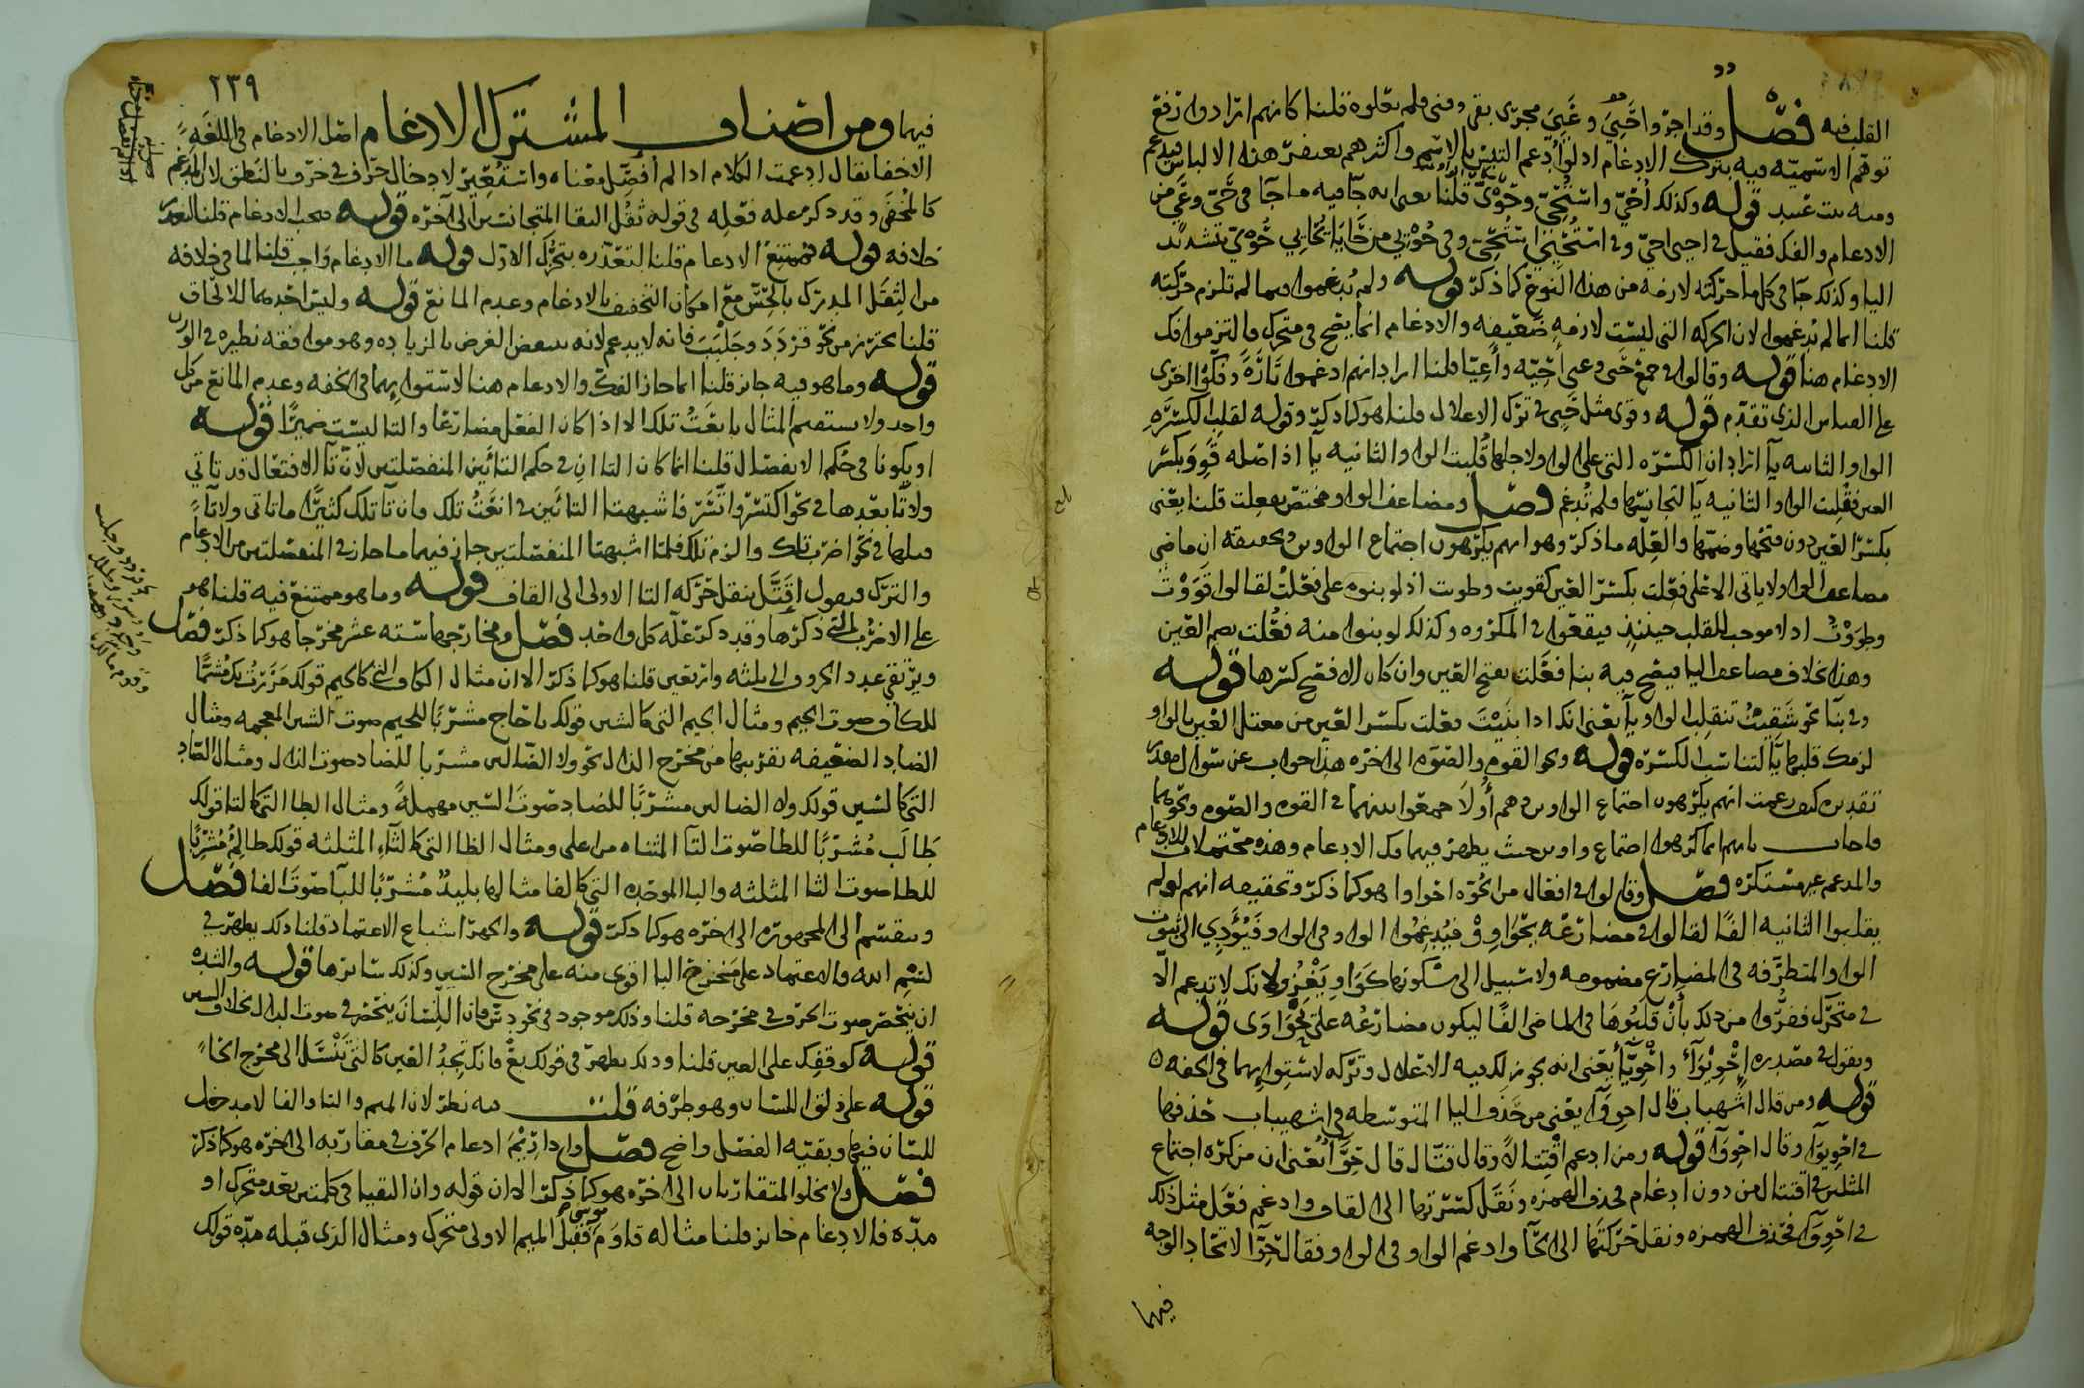 القلب فيه فصل وقد اجروا حيي وعيي مجرى بقي وفني فلم يعلوه قلنا كانهم ارادوا رفع
توهم الاسمية فيه بترك الادغام اذ لو ادغم التبس بالاسم واكثرهم يغتفر هذا الالباس فيدغم
ومنه بيت عبيد قوله وكذلك أحي واستحي وحوي قلنا يعني انه جا فيه ما جا في حي وعي من
الادغام والفك فقيل في احيى احي وفي استحيي استحي وفي حويي من حايا يحايي حوي تشديد
اليا وكذلك جا في كل ما حركته لازمة من هذا النوع كما ذكر قوله ولم يدغموا فيما لم تلزم حركته
قلنا انما لم يدغموا لان الحركة التي ليست لازمة ضعيفة والادغام انما يصح في متحرك فالتزموا فك
الادغام هنا قوله وقالوا في جمع حي وعيي احية واعيا قلنا اراد انهم ادغموا تارة وفكوا اخرى
على القياس الذي تقدم قوله وقوي مثل حيي في ترك الاعلال قلنا هو كما ذكر وقوله لقلب الكسرة
الواو الثانية يآ اراد ان الكسرة التي على الواو ولاجلها قلبت الواو الثانية يآ اذ اصله قوو بكسر
العين فقلبت الواو الثانية يآ لتجانسها فلم تدغم فصل ومضاعف الواو مختص بفعلت قلنا يعني
بكسر العين دون فتحها وضمها والعلة ما ذكر وهو انهم يكرهون اجتماع الواوين وتحقيقه ان ماضي
مضاعف الواو لا ياتي الا على فعلت بكسر العين كقويت وطويت اذ لو بنوه على فعلت لقالوا قووت
وطووت اذ لا موجب للقلب حينئذ فيقعوا في المكروه وكذلك لو بنوا منه فعلت بضم العين
وهذا بخلاف مضاعف اليا فيصح فيه بنا فعلت بفتح العين وان كان الافصح كسرها قوله
وفي بنآ نحو شقيت تنقلب الواو يآ يعني انك اذا بنيت فعلت بكسر العين من معتل العين بالواو
لزمك قلبها يآ لتناسب الكسرة قوله ونحو القوه والصوه الى اخره هذا جواب عن سوال مقدر
تقديره كيف زعمت انهم يكرهون اجتماع الواوين وهم أولا جمعوا بينهما في القوه والصوه ونحوهما
فاجاب بانهم انما كرهوا اجتماع واوين حيث يظهر فيهما فك الادغام وهذه محتملات للادغام
والمدغم غير مستكره فصل وقالوا في افعال من الحوة احواوا هو كما ذكر وتحقيقه انهم لو لم
يقلبوا الثانية الفا لقالوا في مضارعه يحواوو فيدغموا الواو في الواو فيؤدي الى ثبوت
الواو المتطرفة في المضارع مضمومة ولا سبيل الى سكونها كواو يغزو لانك لا تدغم الا
في متحرك ففروا من ذلك بأن قلبوها في الماضي الفا ليكون مضارعه على يحواوى قوله
وتقول في مصدره احويوآء واحويآء يعني انه يجوز لك فيه الاعلال وتركه لاستوايهما في الخفه
قوله ومن قال اشهباب قال احووآ يعني من حذف اليا المتوسطه في اشهيباب حذفها
في احويوآ وقال احووآ قوله ومن ادغم اقتتالا وقال قتال قال حوآ يعني ان من كره اجتماع
المثلين في اقتتال من دون ادغام فحذف الهمزه ونقل كسرتها الى القاف وادغم فعل مثل ذلك
في احووآ فحذف الهمزه ونقل حركتها الى الحآ وادغم الواو في الواو فقال حوآ لاتحاد الوجه
فيهما
٢٣٩
فيهما ومن اصناف المشترك الادغام اصل الادغام في اللغة
الاخفا يقال ادغمت الكلام اذا لم أفصل معناه واستعير لادخال حرف في حرف بالنطق لان المدغم
كالمخفى وقد ذكر عله فعله في قوله ثقل التقا المتجانسين الى آخره قوله يجب الادغام قلنا لتعذر
خلافه قوله يمتنع الادغام قلنا لتعذره بتحرك الاول قوله فالادغام واجب قلنا لما في خلافه
من الثقل المدرك بالحس مع امكان التخفيف بالادغام وعدم المانع قوله وليس احدهما للالحاق
قلنا يحترز من نحو قردد وجلبب فانه لا يدغم لانه ينقض الغرض بالزيادة وهو موافقه نظيره في الوزن
قوله وما هو فيه جايز قلنا انما جاز الفك والادغام هنا لاستوايهما في الخفه وعدم المانع من كل
واحد ولا يستقيم المثال بانعت تلك الا اذا كان الفعل مضارعا والتا ليست ضميرا قوله
او يكونا في حكم الانفصال قلنا انما كان التاان في حكم التائين المنفصلتين لان تآ الافتعال قد ياتي
ولا تآ بعدها في نحو اكتسر وانتشر فاشبهت التائين في انعت تلك فان تآ تلك كثيرا ما تاتي ولا تآء
قبلها في نحو اضرب تلك والزم تلك فلما اشبهتا المنفصلتين جاز فيهما ما جاز في المنفصلتين من الادغام
والترك فيقول اقتتل بنقل حركه التا الاولى الى القاف قوله وما هو ممتنع فيه قلنا هو
على الاضرب التي ذكرها وقد ذكر علة كل واحد فصل ومخارجها ستة عشر مخرجا هو كما ذكر فصل
ويرتقي عدد الحروف الى ثلثه واربعين قلنا هو كما ذكر الا ان مثال الكاف التي كالجيم قولك مررت بك مشما
للكاف صوت الجيم ومثال الجيم التي كالشين قولك يا حاج مشربا للجيم صوت الشين المعجمه ومثال
الضاد الضعيفه تقريبها من مخرج الذال نحو ولا الضالين مشربا للضاد صوت الذال ومثال الصاد
التي كالسين قولك ولا الضالين مشربا للضاد صوت السين مهملة ومثال الطا التي كالتا قولك
طالب مشربا للطا صوت التآ المثناه من اعلى ومثال الظا التي كالثآء المثلثه قولك ظالم مشربا
للظا صوت الثا المثلثه والبا الموحده التي كالفا مثالها بليد مشربا للبآ صوت الفا فصل
وينقسم الى المجهوره الى اخره هو كما ذكر قوله والجهر اشباع الاعتماد قلنا ذلك يظهر في
لبسم الله فالاعتماد على مخرج البا اقوى منه على مخرج السين وكذلك سايرها قوله والشده
ان ينحصر صوت الحرف في مخرجه قلنا وذلك موجود في نحو دس فان اللسان ينحصر في صوت الدال بخلاف السين
قوله كوقفك على العين قلنا وذلك يظهر في قولك بع فانك تجد العين كالتي تنسل الى مخرج الحاء
قوله على ذلق اللسان وهو طرفه قلت فيه نظر لان الميم والبا والفا لا مدخل
للسان فيها وبقية الفصل واضح فصل واذا ريم ادغام الحرف في مقاربه الى اخره هو كما ذكر
فصل ولا يخلو المتقاربان الى اخره هو كما ذكر الا ان قوله وان التقيا في كلمتين بعد متحرك او
مده فالادغام جايز قلنا مثاله قاوم موسى فقبل الميم الاولى متحرك ومثال الذي قبله مده قولك